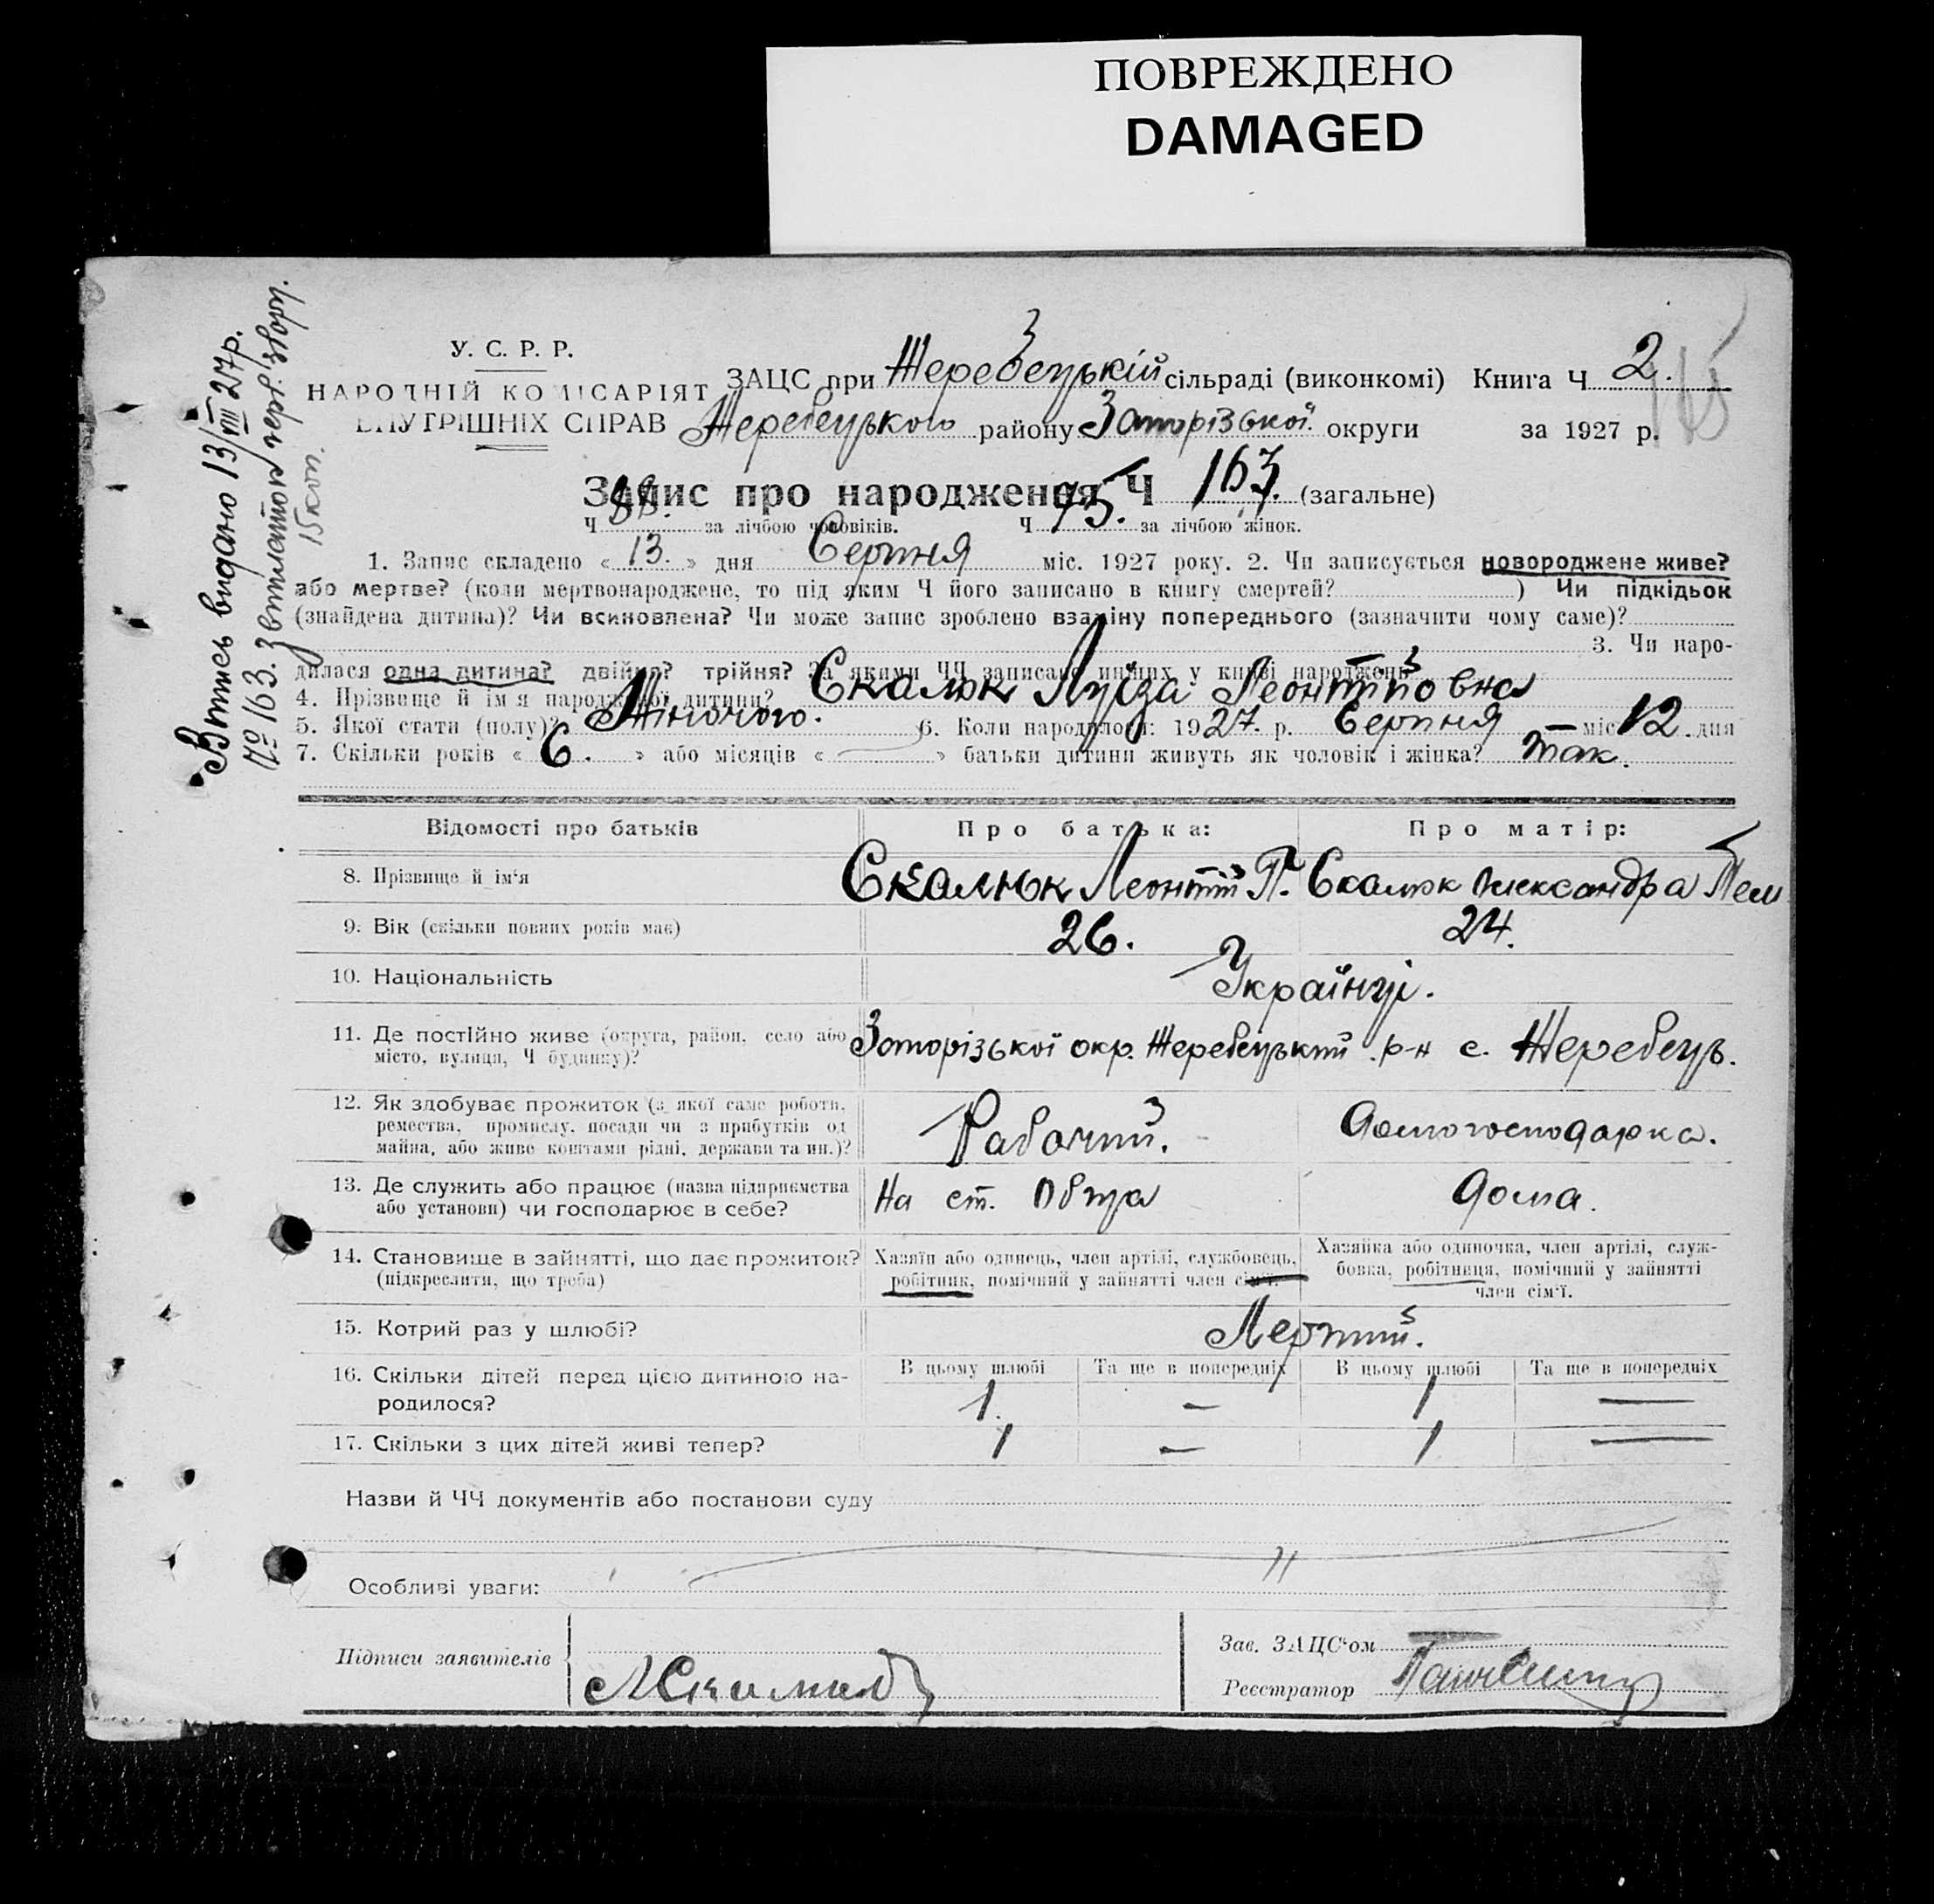 ПОВРЕЖДЕНО
DAMAGED
У. С. Р. Р.
НАРОДНІЙ КОМІСАРІЯТ
ВНУТРІШНІХ СПРАВ
ЗАЦС при Жеребецькій сільраді (виконкомі) Книга Ч 2.
Жеребецького району Запорізької округи за 1927 р.
Запис про народження Ч 163. (загальне)
Ч 88. за лічбою чоловіків. Ч 75. за лічбою жінок.
1. Запис складено « 13. » дня Серпня міс. 1927 року. 2. Чи записується новороджене живе?
або мертве? (коли мертвонароджене, то під яким Ч його записано в книгу смертей? ) Чи підкідьок
(знайдена дитина)? Чи всиновлена? Чи може запис зроблено взаміну попереднього (зазначити чому саме)?
3. Чи наро-
дилася одна дитина? двійня? трійня? За якими ЧЧ записано инших у книзі народжень
4. Прізвище й ім'я народженої дитини? Скалюк Луїза Леонтіївна
5. Якої стати (полу)? Жіночого. 6. Коли народилося: 1927. р. Серпня міс 12. дня
7. Скільки років « 6. » або місяців « — » батьки дитини живуть як чоловік і жінка? так.
Відомості про батьків Про батька: Про матір:
8. Прізвище й ім'я Скалюк Леонтій П. Скалюк Олександра
9. Вік (скільки повних років має) 26. 24.
10. Національність Українці.
11. Де постійно живе (округа, район, село або
місто, вулиця, Ч будинку)? Запорізької окр. Жеребецький р-н с. Жеребець.
12. Як здобуває прожиток (з якої саме роботи,
ремества, промислу, посади чи з прибутків од
майна, або живе коштами рідні, держави та ин.)? Рабочий. Домогосподарка.
13. Де служить або працює (назва підприємства
або установи) чи господарює в себе? На ст. Обща дома.
14. Становище в зайнятті, що дає прожиток?
(підкреслити, що треба)
Хазяїн або одинець, член артілі, службовець,
робітник, помічний у зайнятті член сім'ї.
Хазяйка або одиночка, член артілі, служ-
бовка, робітниця, помічний у зайнятті
член сім'ї.
15. Котрий раз у шлюбі? Перший.
В цьому шлюбі Та ще в попередніх В цьому шлюбі Та ще в попередніх
16. Скільки дітей перед цією дитиною на-
родилося? 1. — 1 —
17. Скільки з цих дітей живі тепер? 1 — 1 —
Назви й ЧЧ документів або постанови суду
Особливі уваги:
Підписи заявителів
Зав. ЗАЦС'ом
Реєстратор
Випись видано 13/VIII 27р.
№ 163. З виплатою герб. збору.
15 коп.